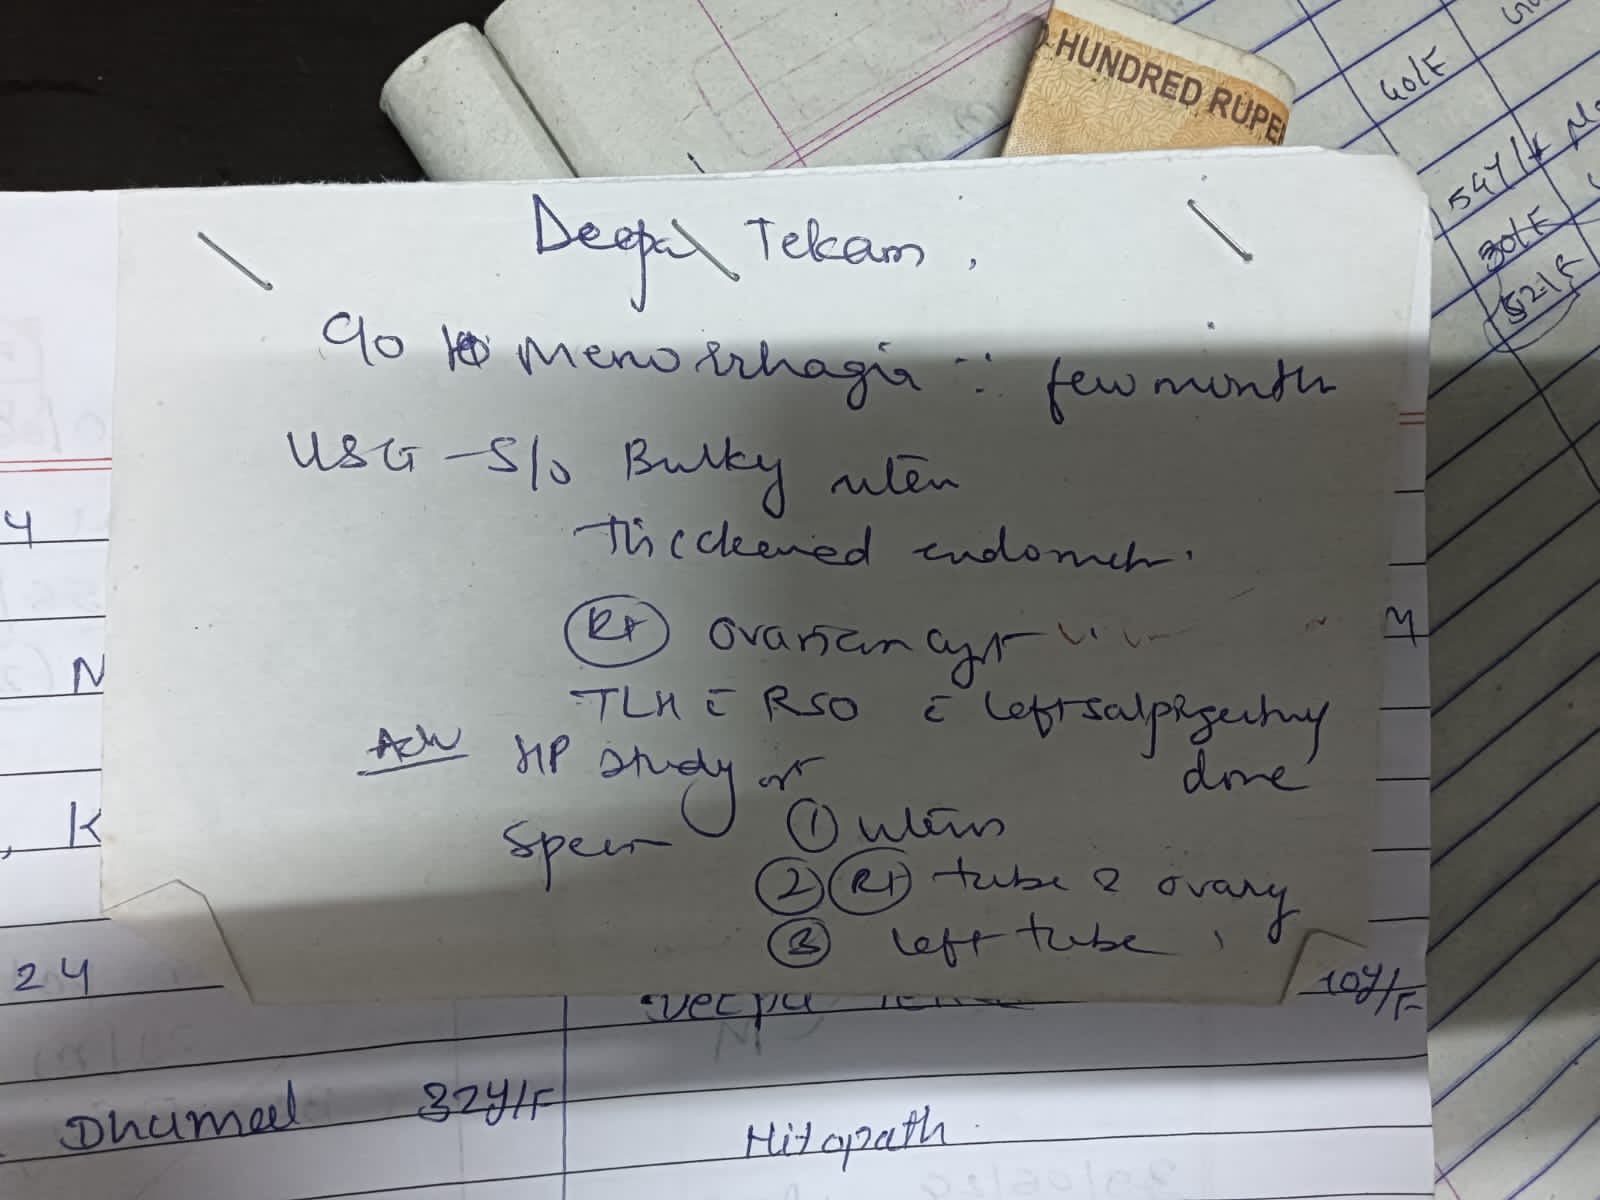 HUNDRED RUPE
40/F
54Y/F
30/F
52/F
Deepa Tekam,
C/o Menorrhagia ∵ few month
USG - S/o Bulky uterus
thicckened endometr.
Rt ovarian cyst
TLH c̄ RSO c̄ left salpingectmy
done
Adv HP study of
Specm ① uterus
② Rt tube & ovary
③ left tube,
Y
N
M
, K
24
10Y/F
Dhumal 32Y/F
Hitopath.